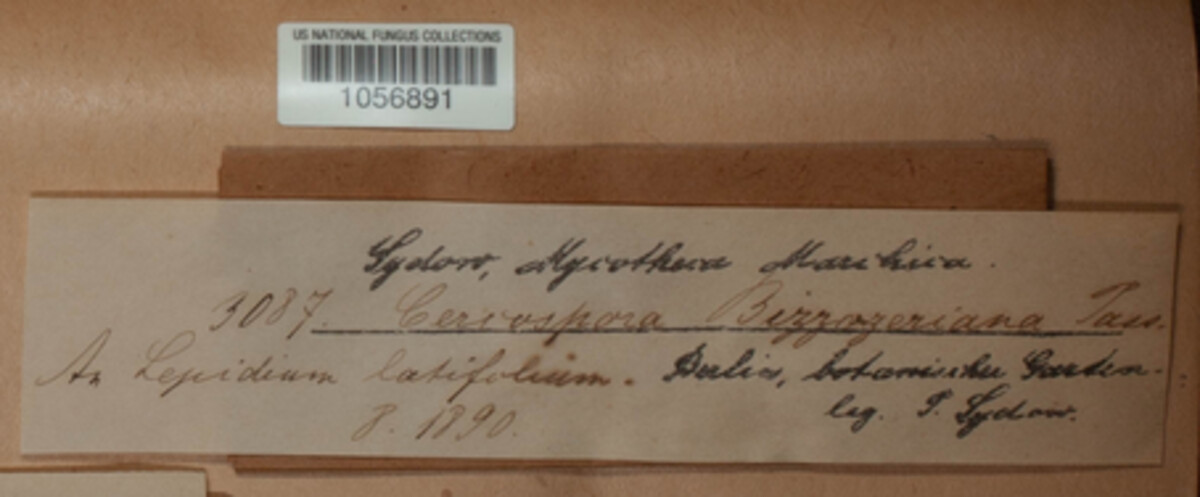 US NATIONAL FUNGUS COLLECTIONS
1056891
Sydow, Mycotheca Marchica.
3087. Cercospora Bizzozeriana Pass.
An Lepidium latifolium. Berlin, botanischer Garten.
8. 1890. leg. P. Sydow.